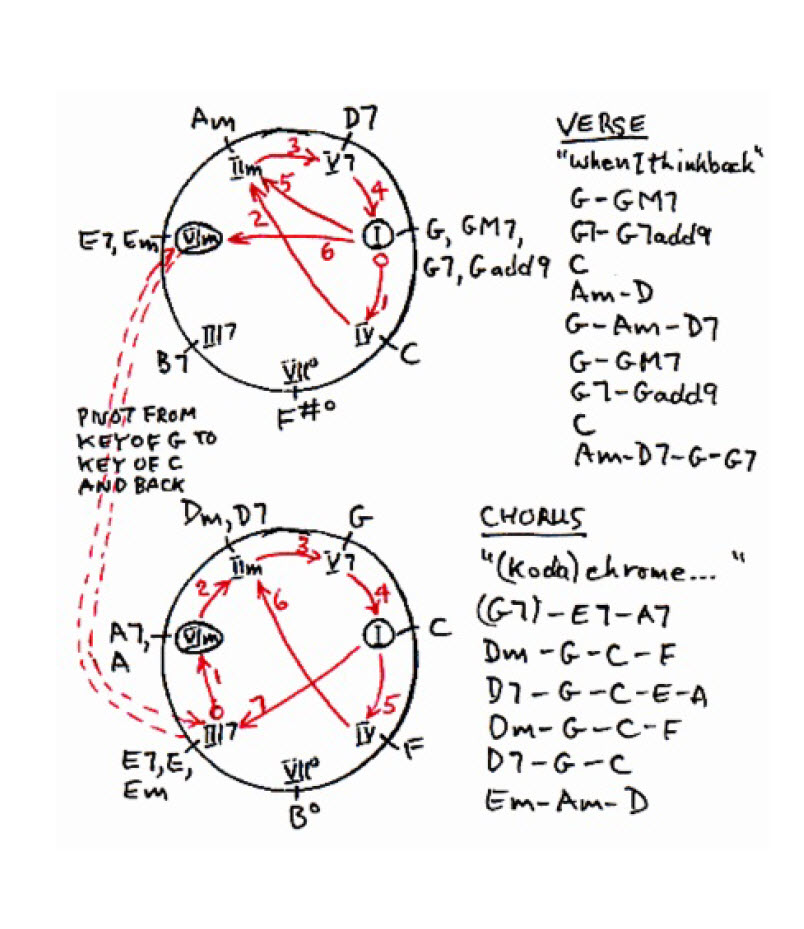 Am
D7
IIm
3
V7
5
4
2
E7, Em
VIm
6
I
G, GM7,
G7, Gadd9
0
1
IV
C
III7
B7
VII°
F#°
PIVOT FROM
KEY OF G TO
KEY OF C
AND BACK
VERSE
"When I think back"
G-GM7
G7-G7add9
C
Am-D
G-Am-D7
G-GM7
G7-Gadd9
C
Am-D7-G-G7
Dm, D7
G
IIm
3
V7
2
6
4
A7,
A
VIm
I
C
1
7
5
0
III7
IV
F
E7, E,
Em
VII°
B°
CHORUS
"(Koda)chrome..."
(G7)-E7-A7
Dm-G-C-F
D7-G-C-E-A
Dm-G-C-F
D7-G-C
Em-Am-D